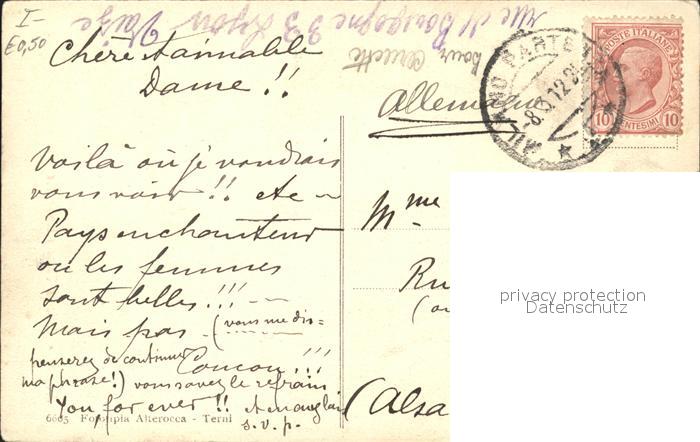 I-
€0,50
rue de Bourgogne 33 Lyon Vaise
Chère & aimable
Dame !!
Allemagne
MILANO PARTENZA
-8.3.12.
POSTE ITALIANE
10 CENTESIMI 10
Voilà où je voudrais
vous voir !! ete ~
Pays enchanteur
où les femmes
sont belles !!! ~
Mais pas - (vous me dis=
penserez de continuer
Coucou !!!
ma phrase !) vous savez le refrain
You for ever !! et en anglais
s.v.p.
6665 Fototipia Alterocca - Terni
Mme
Ru
(Alsa
privacy protection
Datenschutz